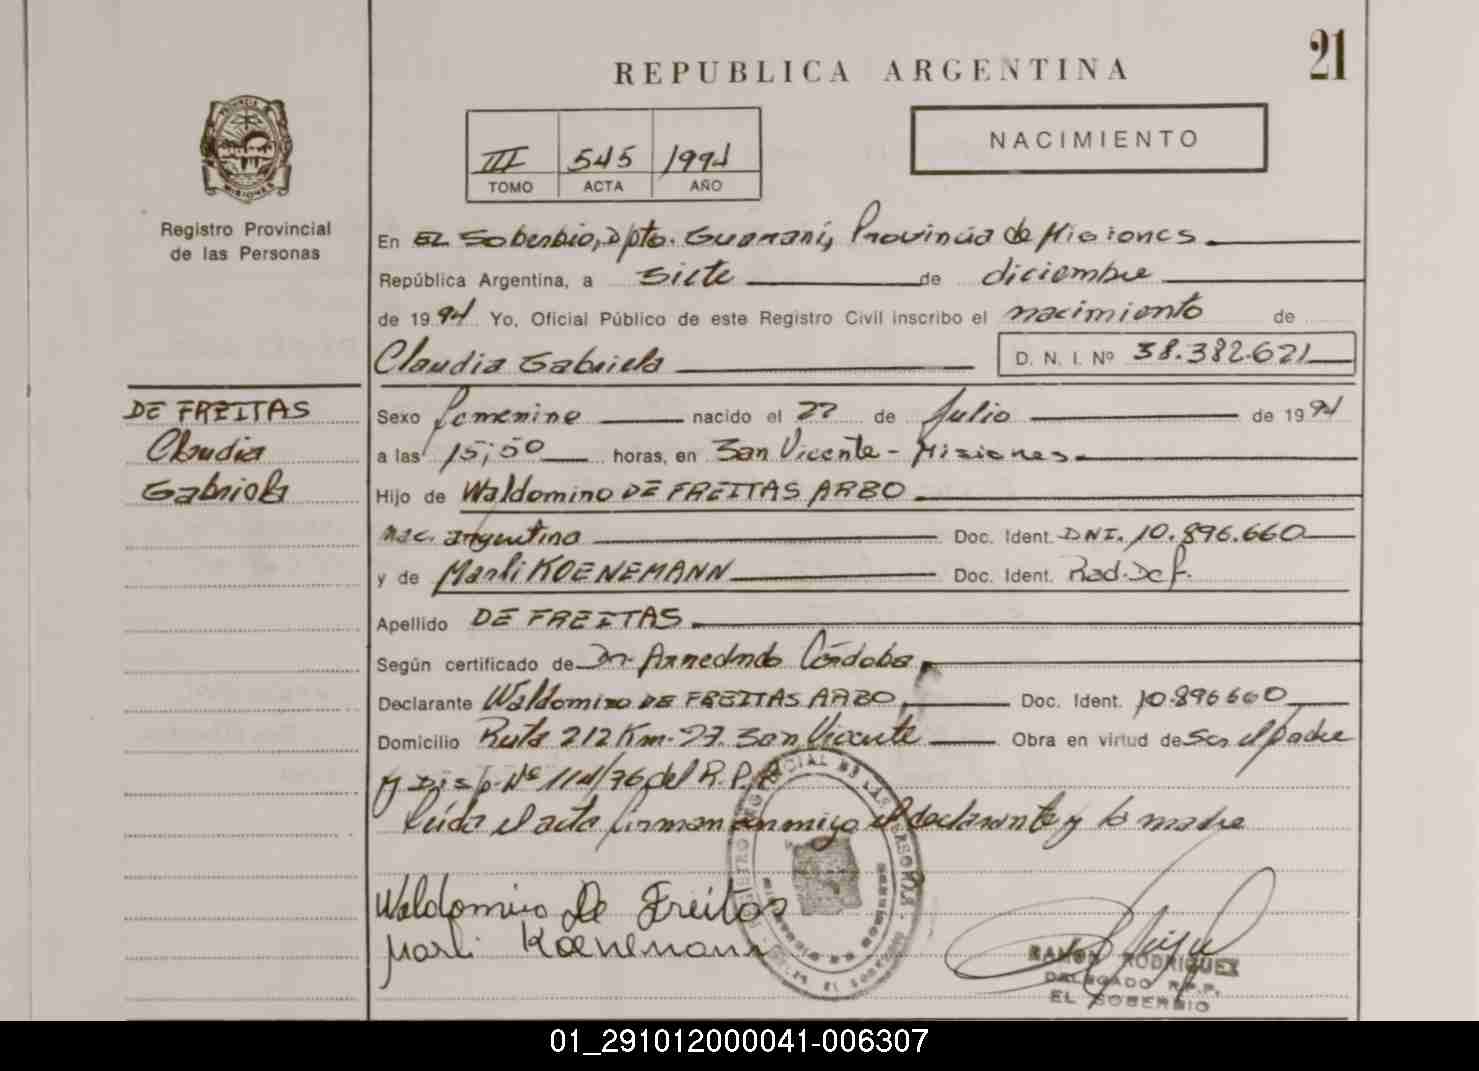 21
REPUBLICA ARGENTINA
NACIMIENTO
III 545 1994
TOMO ACTA AÑO
PROVINCIA DE MISIONES
Registro Provincial
de las Personas
En EL Soberbio, Dpto. Guaraní, Provincia de Misiones
República Argentina, a siete de diciembre
de 1994 Yo, Oficial Público de este Registro Civil inscribo el nacimiento de
Claudia Gabriela D. N. I. Nº 38.382.621
DE FREITAS
Claudia
Gabriela
Sexo femenino nacido el 22 de Julio de 1994
a las 15,50 horas, en San Vicente - Misiones
Hijo de Waldomiro DE FREITAS ARBO
nac. argentina Doc. Ident. DNI. 10.896.660
y de Marli KOENEMANN Doc. Ident. Rad. Def.
Apellido DE FREITAS
Según certificado de Dr. Armando Córdoba
Declarante Waldomiro DE FREITAS ARBO, Doc. Ident. 10.896660
Domicilio Ruta 212 Km. 27. San Vicente Obra en virtud de Ser el padre
y Disp. Nº 114/76 del R.P.P.
Leída el acta firman conmigo el declarante y la madre
Waldomiro De Freitas
Marli Koenemann
RAMON RODRIGUEZ
DELEGADO R.P.P.
EL SOBERBIO
01_291012000041-006307